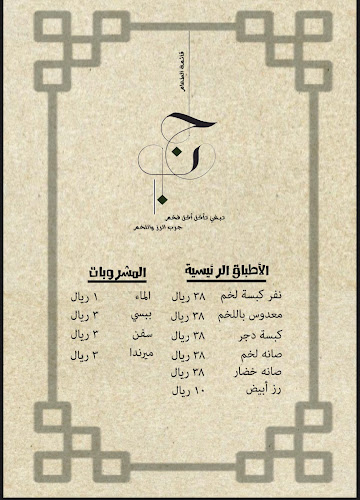 قائمة الطعام
تبغى تاكل أكل فخم
جرب الرز واللخم
الأطباق الرئيسية
نفر كبسة لخم ٣٨ ريال
معدوس باللخم ٣٨ ريال
كبسة دجر ٣٨ ريال
صانه لخم ٣٨ ريال
صانه خضار ٣٨ ريال
رز أبيض ١٠ ريال
المشروبات
الماء ١ ريال
ببسي ٣ ريال
سفن ٣ ريال
ميرندا ٣ ريال